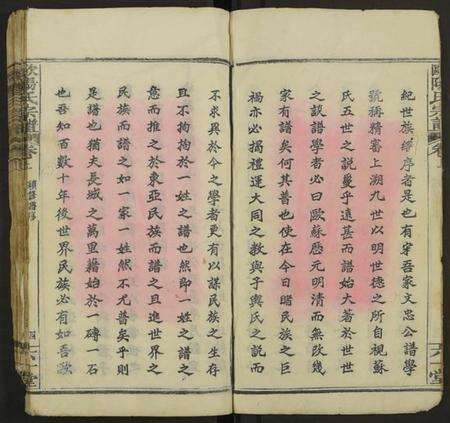 歐陽氏宗譜
六一堂
紀世族縣序者是也有宇吾家文忠公譜學
號稱精審上溯九世以明世德之所自視蘇
氏五世之說夐乎遠甚而譜始大著於世世
之談譜學者必曰歐蘇歷元明清而無改幾
家有譜矣何其普也使在今日睹民族之巨
禍亦必揭禮運大同之教與子輿氏之說而
不求異於今之學者更有以謀民族之生存
且不拘拘於一姓之譜也然即一姓之譜之
意而推之於東亞民族而譜之且進世界之
民族而譜之如一家一姓然不尤普矣乎則
是譜也猶夫長城之萬里籍始於一磚一石
也吾知百數十年後世界民族必有如吾歐
歐陽氏宗譜
四
六一堂